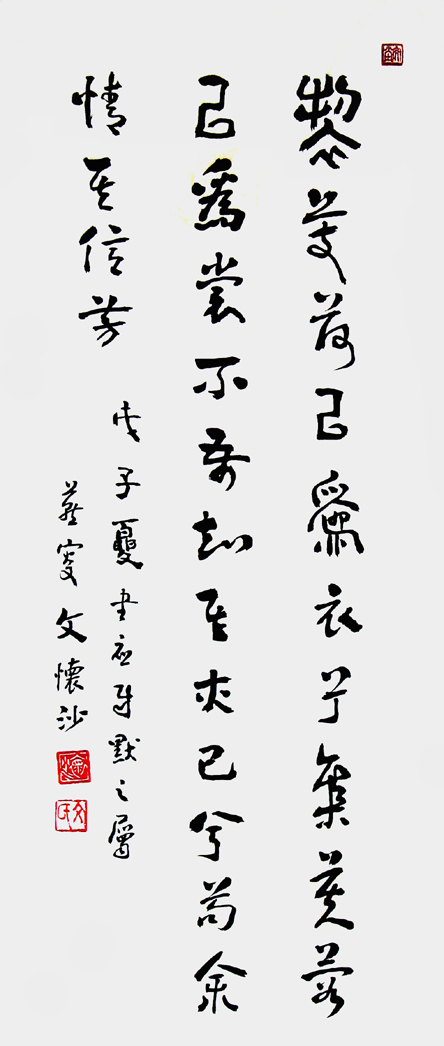 製芰荷㠯爲衣兮集芙蓉
㠯爲裳不吾知其亦已兮苟余
情其信芳
戊子夏書應默之屬
燕叟文懷沙